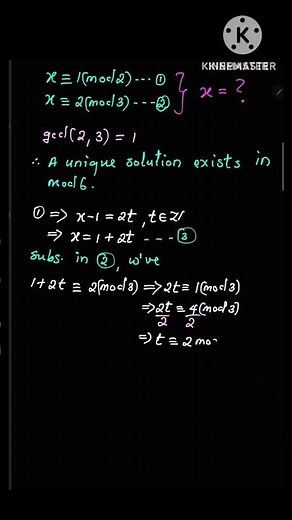 KINEMASTER
x ≡ 1(mod2) --- ①
x ≡ 2(mod3) --- ②
x = ?
gcd(2,3) = 1
∴ A unique solution exists in
mod 6.
① ⇒ x-1 = 2t, t∈ℤ
⇒ x = 1+2t --- ③
subs. in ②, we've
1+2t ≡ 2(mod3) ⇒ 2t ≡ 1(mod3)
⇒ 2t/2 ≡ 4/2 (mod3)
⇒ t ≡ 2 mo